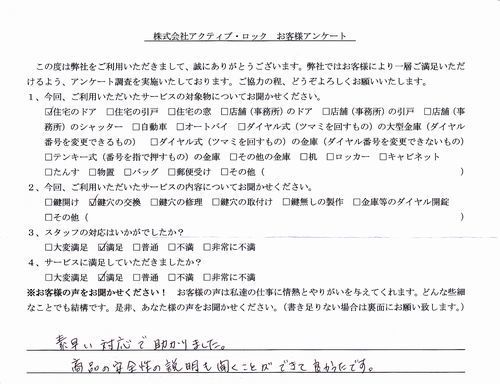 株式会社アクティブ・ロック　お客様アンケート
この度は弊社をご利用いただきまして、誠にありがとうございます。弊社ではお客様により一層ご満足いただ
けるよう、アンケート調査を実施いたしております。ご協力の程、どうぞよろしくお願いいたします。
1、今回、ご利用いただいたサービスの対象物についてお聞かせください。
☑住宅のドア　□住宅の引戸　□住宅の窓　□店舗（事務所）のドア　□店舗（事務所）の引戸　□店舗（事
務所）のシャッター　□自動車　□オートバイ　□ダイヤル式（ツマミを回すもの）の大型金庫（ダイヤル
番号を変更できるもの）　□ダイヤル式（ツマミを回すもの）の金庫（ダイヤル番号を変更できないもの）
□テンキー式（番号を指で押すもの）の金庫　□その他の金庫　□机　□ロッカー　□キャビネット
□たんす　□物置　□バッグ　□郵便受け　□その他（　　　）
2、今回、ご利用いただいたサービスの内容についてお聞かせください。
□鍵開け　☑鍵穴の交換　□鍵穴の修理　□鍵穴の取付け　□鍵無しの製作　□金庫等のダイヤル開錠
□その他（　　　）
3、スタッフの対応はいかがでしたか？
□大変満足　☑満足　□普通　□不満　□非常に不満
4、サービスに満足していただきましたか？
□大変満足　☑満足　□普通　□不満　□非常に不満
※お客様の声をお聞かせください！　お客様の声は私達の仕事に情熱とやりがいを与えてくれます。どんな些細
なことでも結構です。是非、あなた様の声をお聞かせください。（書き足りない場合は裏面にお願い致します。）
素早い対応で助かりました。
商品の安全性の説明も聞くことができて良かったです。